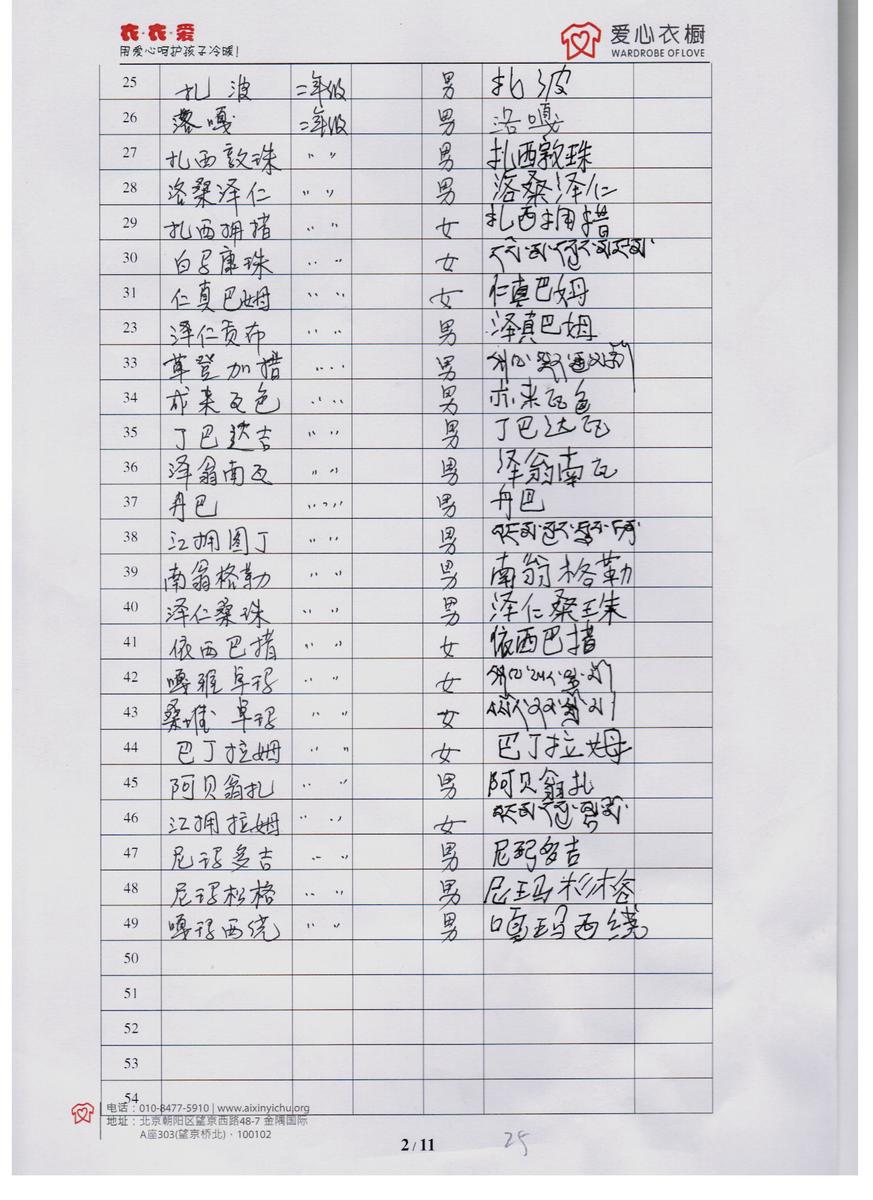 衣·衣·爱
用爱心呵护孩子冷暖!
爱心衣橱
WARDROBE OF LOVE
25 扎波 二年级 男 扎波
26 洛嘎 二年级 男 洛嘎
27 扎西敦珠 〃 男 扎西敦珠
28 洛桑泽仁 〃 男 洛桑泽仁
29 扎西拥措 〃 女 扎西拥措
30 白马康珠 〃 女
31 仁真巴姆 〃 女 仁真巴姆
23 泽仁贡布 〃 男 泽真巴姆
33 草登加措 〃 男
34 成来瓦色 〃 男
35 丁巴达吉 〃 男 丁巴达瓦
36 泽翁南瓦 〃 男 泽翁南瓦
37 丹巴 〃 男 丹巴
38 江拥图丁 〃 男
39 南翁格勒 〃 男 南翁格勒
40 泽仁桑珠 〃 男 泽仁桑珠
41 依西巴措 〃 女 依西巴措
42 嘎雅卓玛 〃 女
43 桑堆卓玛 〃 女
44 巴丁拉姆 〃 女 巴丁拉姆
45 阿贝翁扎 〃 男 阿贝翁扎
46 江拥拉姆 〃 女
47 尼玛多吉 〃 男 尼玛多吉
48 尼玛松格 〃 男 尼玛杉格
49 嘎玛西绕 〃 男 嘎玛西绕
50
51
52
53
54
电话:010-8477-5910 | www.aixinyichu.org
地址:北京朝阳区望京西路48-7 金隅国际
A座303(望京桥北)·100102
2 / 11
25